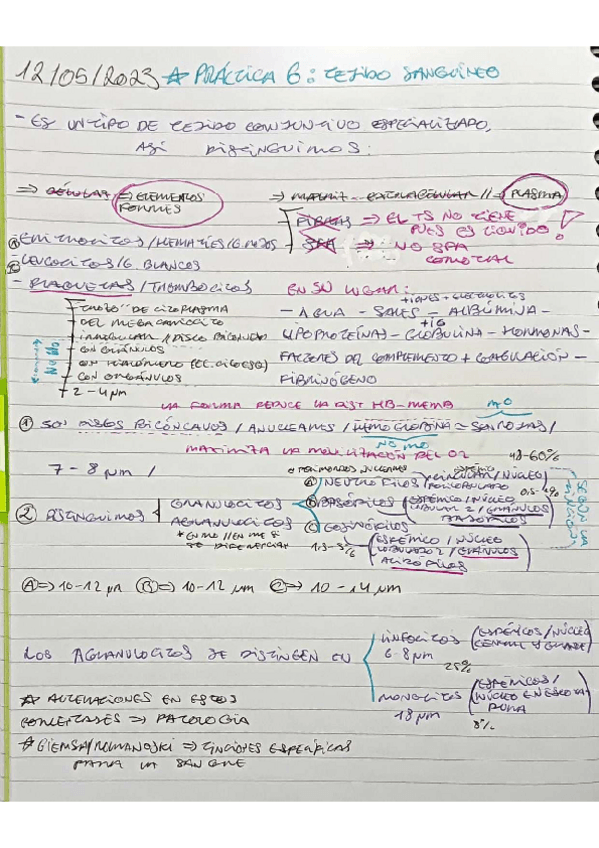 12/05/2023 * PRÁCTICA 6: TEJIDO SANGUÍNEO
- ES UN TIPO DE TEJIDO CONJUNTIVO ESPECIALIZADO,
ASÍ DISTINGUIMOS:
=> CÉLULAS => ELEMENTOS FORMES
=> MATRIZ EXTRACELULAR // => PLASMA
FIBRAS => EL TS NO TIENE PUES ES LÍQUIDO!
SFA => NO SFA COMO TAL
① ERITROCITOS/HEMATÍES/G. ROJOS
② LEUCOCITOS/G. BLANCOS
- PLAQUETAS/TROMBOCITOS
"TROZO" DE CITOPLASMA
DEL MEGACARIOCITO
IRREGULAR / DISCO BICONVEXO
CON GRÁNULOS
CON ORGÁNULOS
2-4 µm
NO NÚ
EN SU LUGAR:
+ IONES + ELECTROLITOS
- AGUA - SALES - ALBÚMINA -
+ IG
LIPOPROTEÍNAS - GLOBULINA - HORMONAS -
FACTORES DEL COMPLEMENTO + COAGULACIÓN -
FIBRINÓGENO
LA FORMA REDUCE LA DIST HB-MEMB
① SON DISCOS BICÓNCAVOS / ANUCLEADAS / HEMOGLOBINA = SON ROJAS /
MAXIMIZA LA MOVILIZACIÓN DEL O2
7-8 µm /
② DISTINGUIMOS
GRANULOCITOS
AGRANULOCITOS
* EN MO // EN ME SÍ SE DIFERENCIAN
POLIMORFOS NUCLEARES
48-60%
Ⓐ NEUTRÓFILOS (CIRCULAR/NÚCLEO POLILOBULADO
0,5-1%
Ⓑ BASÓFILOS (ESFÉRICO/NÚCLEO LOBULAR 2/GRÁNULOS BASÓFILOS)
Ⓒ EOSINÓFILOS
1,3-3%
(ESFÉRICO/NÚCLEO LOBULADO 2/GRÁNULOS ACIDÓFILOS)
SEGÚN LA TINCIÓN
Ⓐ => 10-12 µm Ⓑ => 10-12 µm Ⓒ => 10-14 µm
LOS AGRANULOCITOS SE DISTINGEN EN
LINFOCITOS (ESFÉRICOS/NÚCLEO CENTRAL Y GRANDE)
6-8 µm
25%
MONOCITOS (ESFÉRICOS/ NÚCLEO EN ESCOTADURA
18 µm
8%
* ALTERACIONES EN ESTOS
PORCENTAJES => PATOLOGÍA
* GIEMSA/ROMANOSKI => TINCIONES ESPECÍFICAS
PARA LA SANGRE